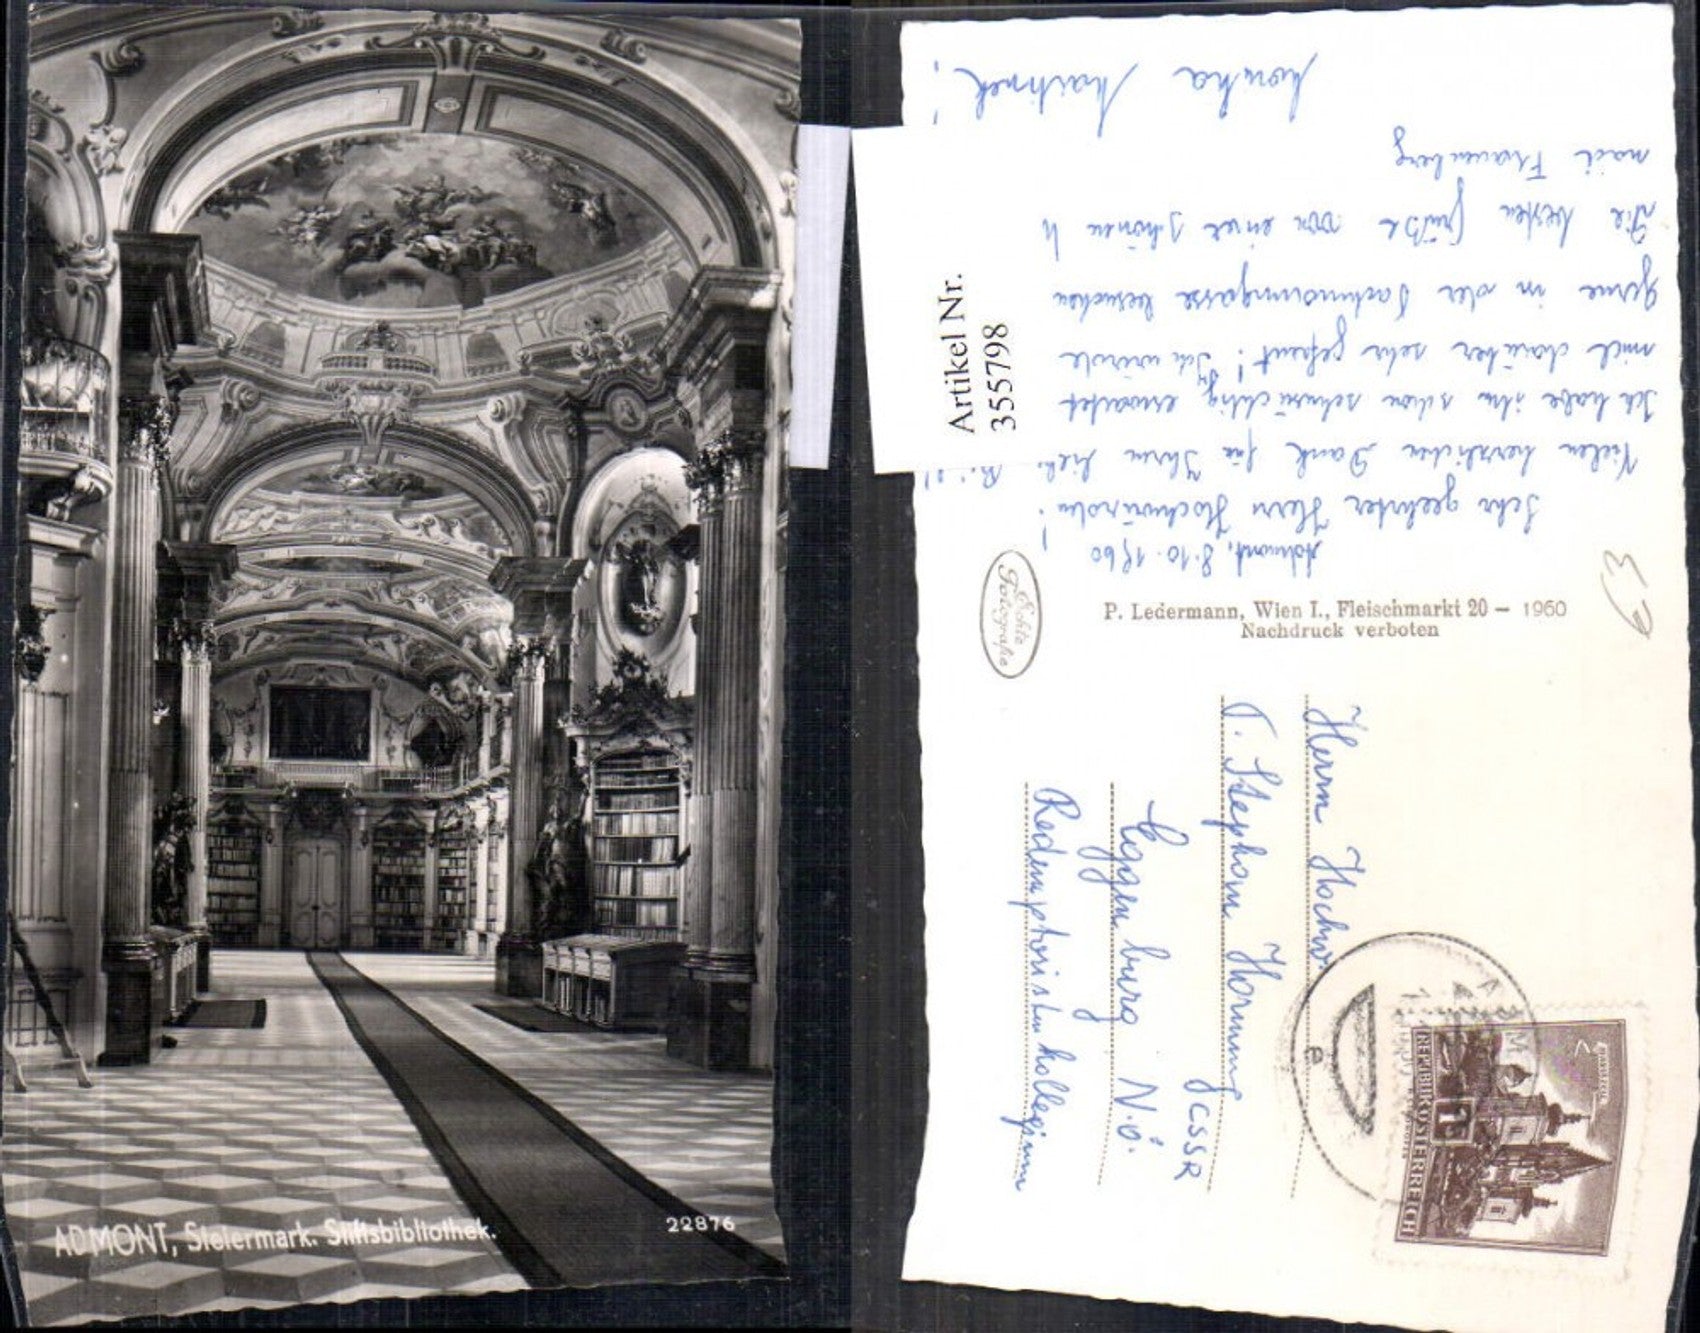 ADMONT, Steiermark. Stiftsbibliothek.
22876
Artikel Nr.
355798
Admont, 8.10.1960
Sehr geehrter Herr Hochwürden!
Vielen herzlichen Dank für Ihren lieb.
Ich habe ihn schon sehnsüchtig erwartet
mich darüber sehr gefreut! Ich würde
gerne in der besuchen
Die besten Grüße von einer schönen
nach Frauenberg
Echte
Fotografie
P. Ledermann, Wien I., Fleischmarkt 20 — 1960
Nachdruck verboten
Herrn Hochw
Stephan Hornung
CSSR
Eggenburg N.Ö.
Redemptoristenkollegium
REPUBLIK ÖSTERREICH